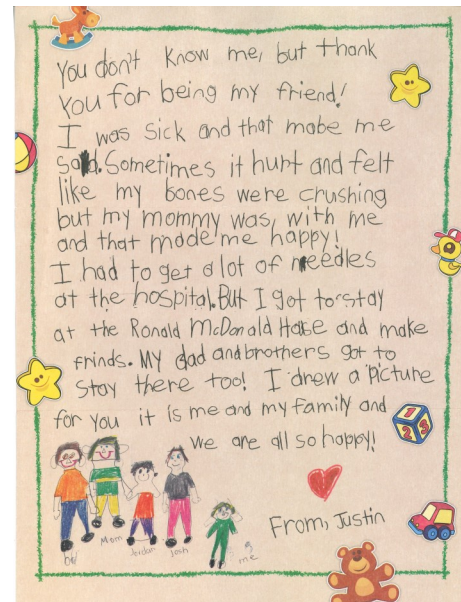 You don't know me, but thank
you for being my friend!
I was sick and that mabe me
sad. Sometimes it hurt and felt
like my bones were crushing
but my mommy was, with me
and that made me happy!
I had to get a lot of needles
at the hospital. But I got to stay
at the Ronald McDonald Hose and make
frinds. My dad and brothers got to
stay there too! I drew a picture
for you it is me and my family and
we are all so happy!
From, Justin
Mom
Jordan
Josh
me
1
2
3